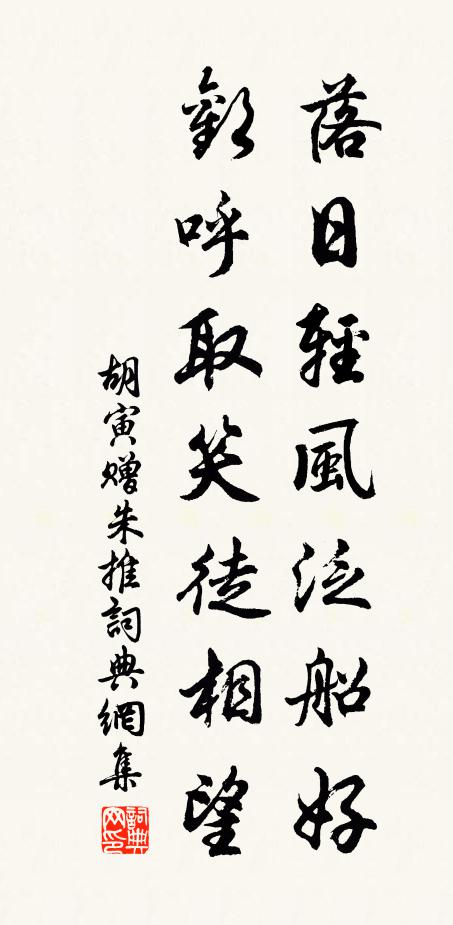 落日輕風泛船好
歡呼取笑徒相望
胡寅赠朱推詞典網集
詞典
网印